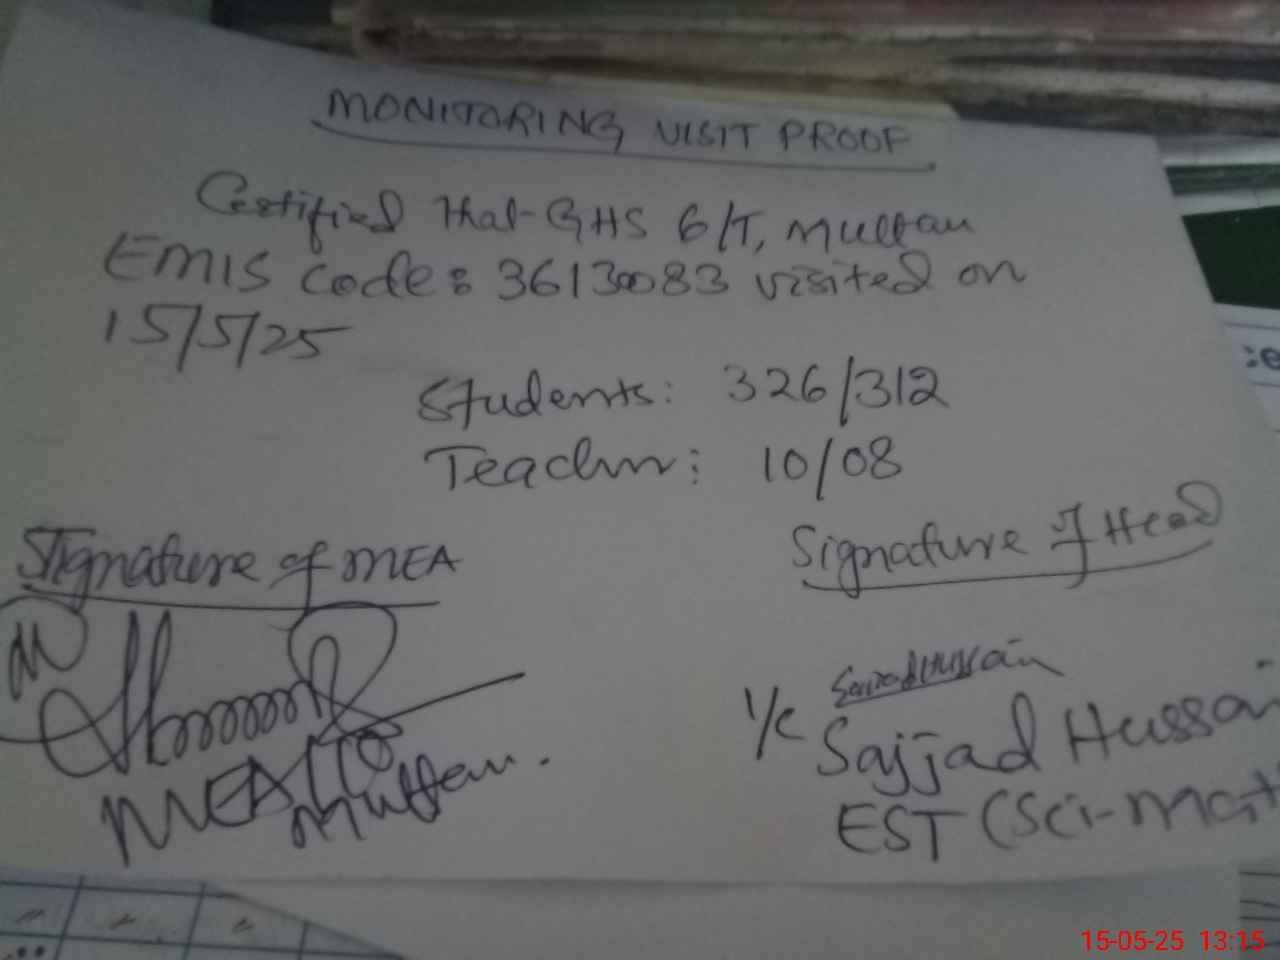 MONITORING VISIT PROOF
Certified that GHS 6/T, Multan
EMIS code: 36130083 visited on
15/5/25
Students: 326/312
Teacher: 10/08
Signature of MEA
Signature of Head
Sajjad Hussain
I/C Sajjad Hussai
MEA
Multan.
EST (Sci-Mat
15-05-25 13:15